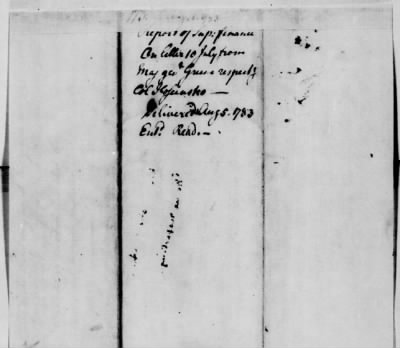 report of Supt. finance
On letter 10 July from
Maj genl Green respectg
Col Kosciusko —
Delivered Aug 5. 1783
Entd. Read. —